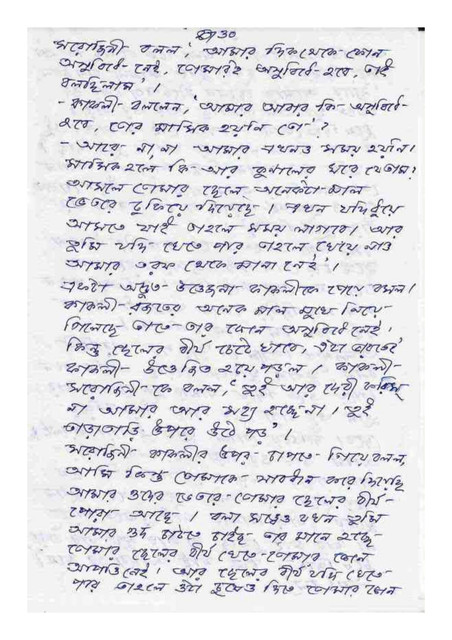 পৃ 30
সরোজিনী বলল, 'আমার দিক থেকে কোন
অসুবিধে নেই, তোমারই অসুবিধে হবে, তাই
বলছিলাম'।
- কাকলী বললেন, 'আমার আবার কি অসুবিধে
হবে, তোর মাসিক হয়নি তো'?
- আরে না, না আমার এখনও সময় হয়নি।
মাসিক হলে কি আর কুনালের ঘরে যেতাম।
আসলে তোমার ছেলে অনেকটা মাল
ভেতরে ঢুকিয়ে দিয়েছে। এখন যদি ধুয়ে
আসতে যাই তাহলে সময় লাগবে। আর
তুমি যদি খেতে পার তাহলে খেয়ে নাও
আমার তরফ থেকে মানা নেই'।
একটা অদ্ভুত উত্তেজনা কাকলীকে পেয়ে বসল।
কাকলী অনেক মাল মুখে নিয়ে
গিলেছে তাতে তার কোন অসুবিধে নেই।
কিন্তু ছেলের বীর্য চেটে খাবে, এটা ভাবতেই
কাকলী উত্তেজিত হয়ে পড়ল। কাকলী
সরোজিনী কে বলল, 'তুই আর দেরী করিস
না আমার আর সহ্য হচ্ছে না। তুই
তাড়াতাড়ি উপরে উঠে পড়'।
সরোজিনী কাকলীর উপর চাপতে গিয়ে বলল,
আমি কিন্তু তোমাকে সাবধান করে দিয়েছি
আমার গুদের ভেতরে তোমার ছেলের বীর্য
পোরা আছে। বলা সত্ত্বেও যখন তুমি
আমার গুদ চাটতে চাইছ তার মানে হচ্ছে
তোমার ছেলের বীর্য খেতে তোমার কোন
আপত্তি নেই। আর ছেলের বীর্য যদি খেতে
পার তাহলে ওটা গুদেও নিতে তোমার কোন